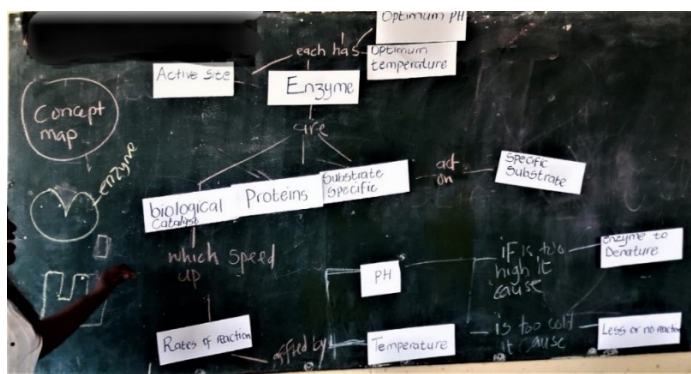 Optimum PH
each has
Optimum
temperature
Active site
Enzyme
Concept
map
are
enzyme
biological
Catalyst
Proteins
Substrate
Specific
act
on
Specific
Substrate
which speed
up
PH
if is too
high it
cause
enzyme to
Denature
Rates of reaction
affied by
Temperature
is too cold
it cause
Less or no reaction